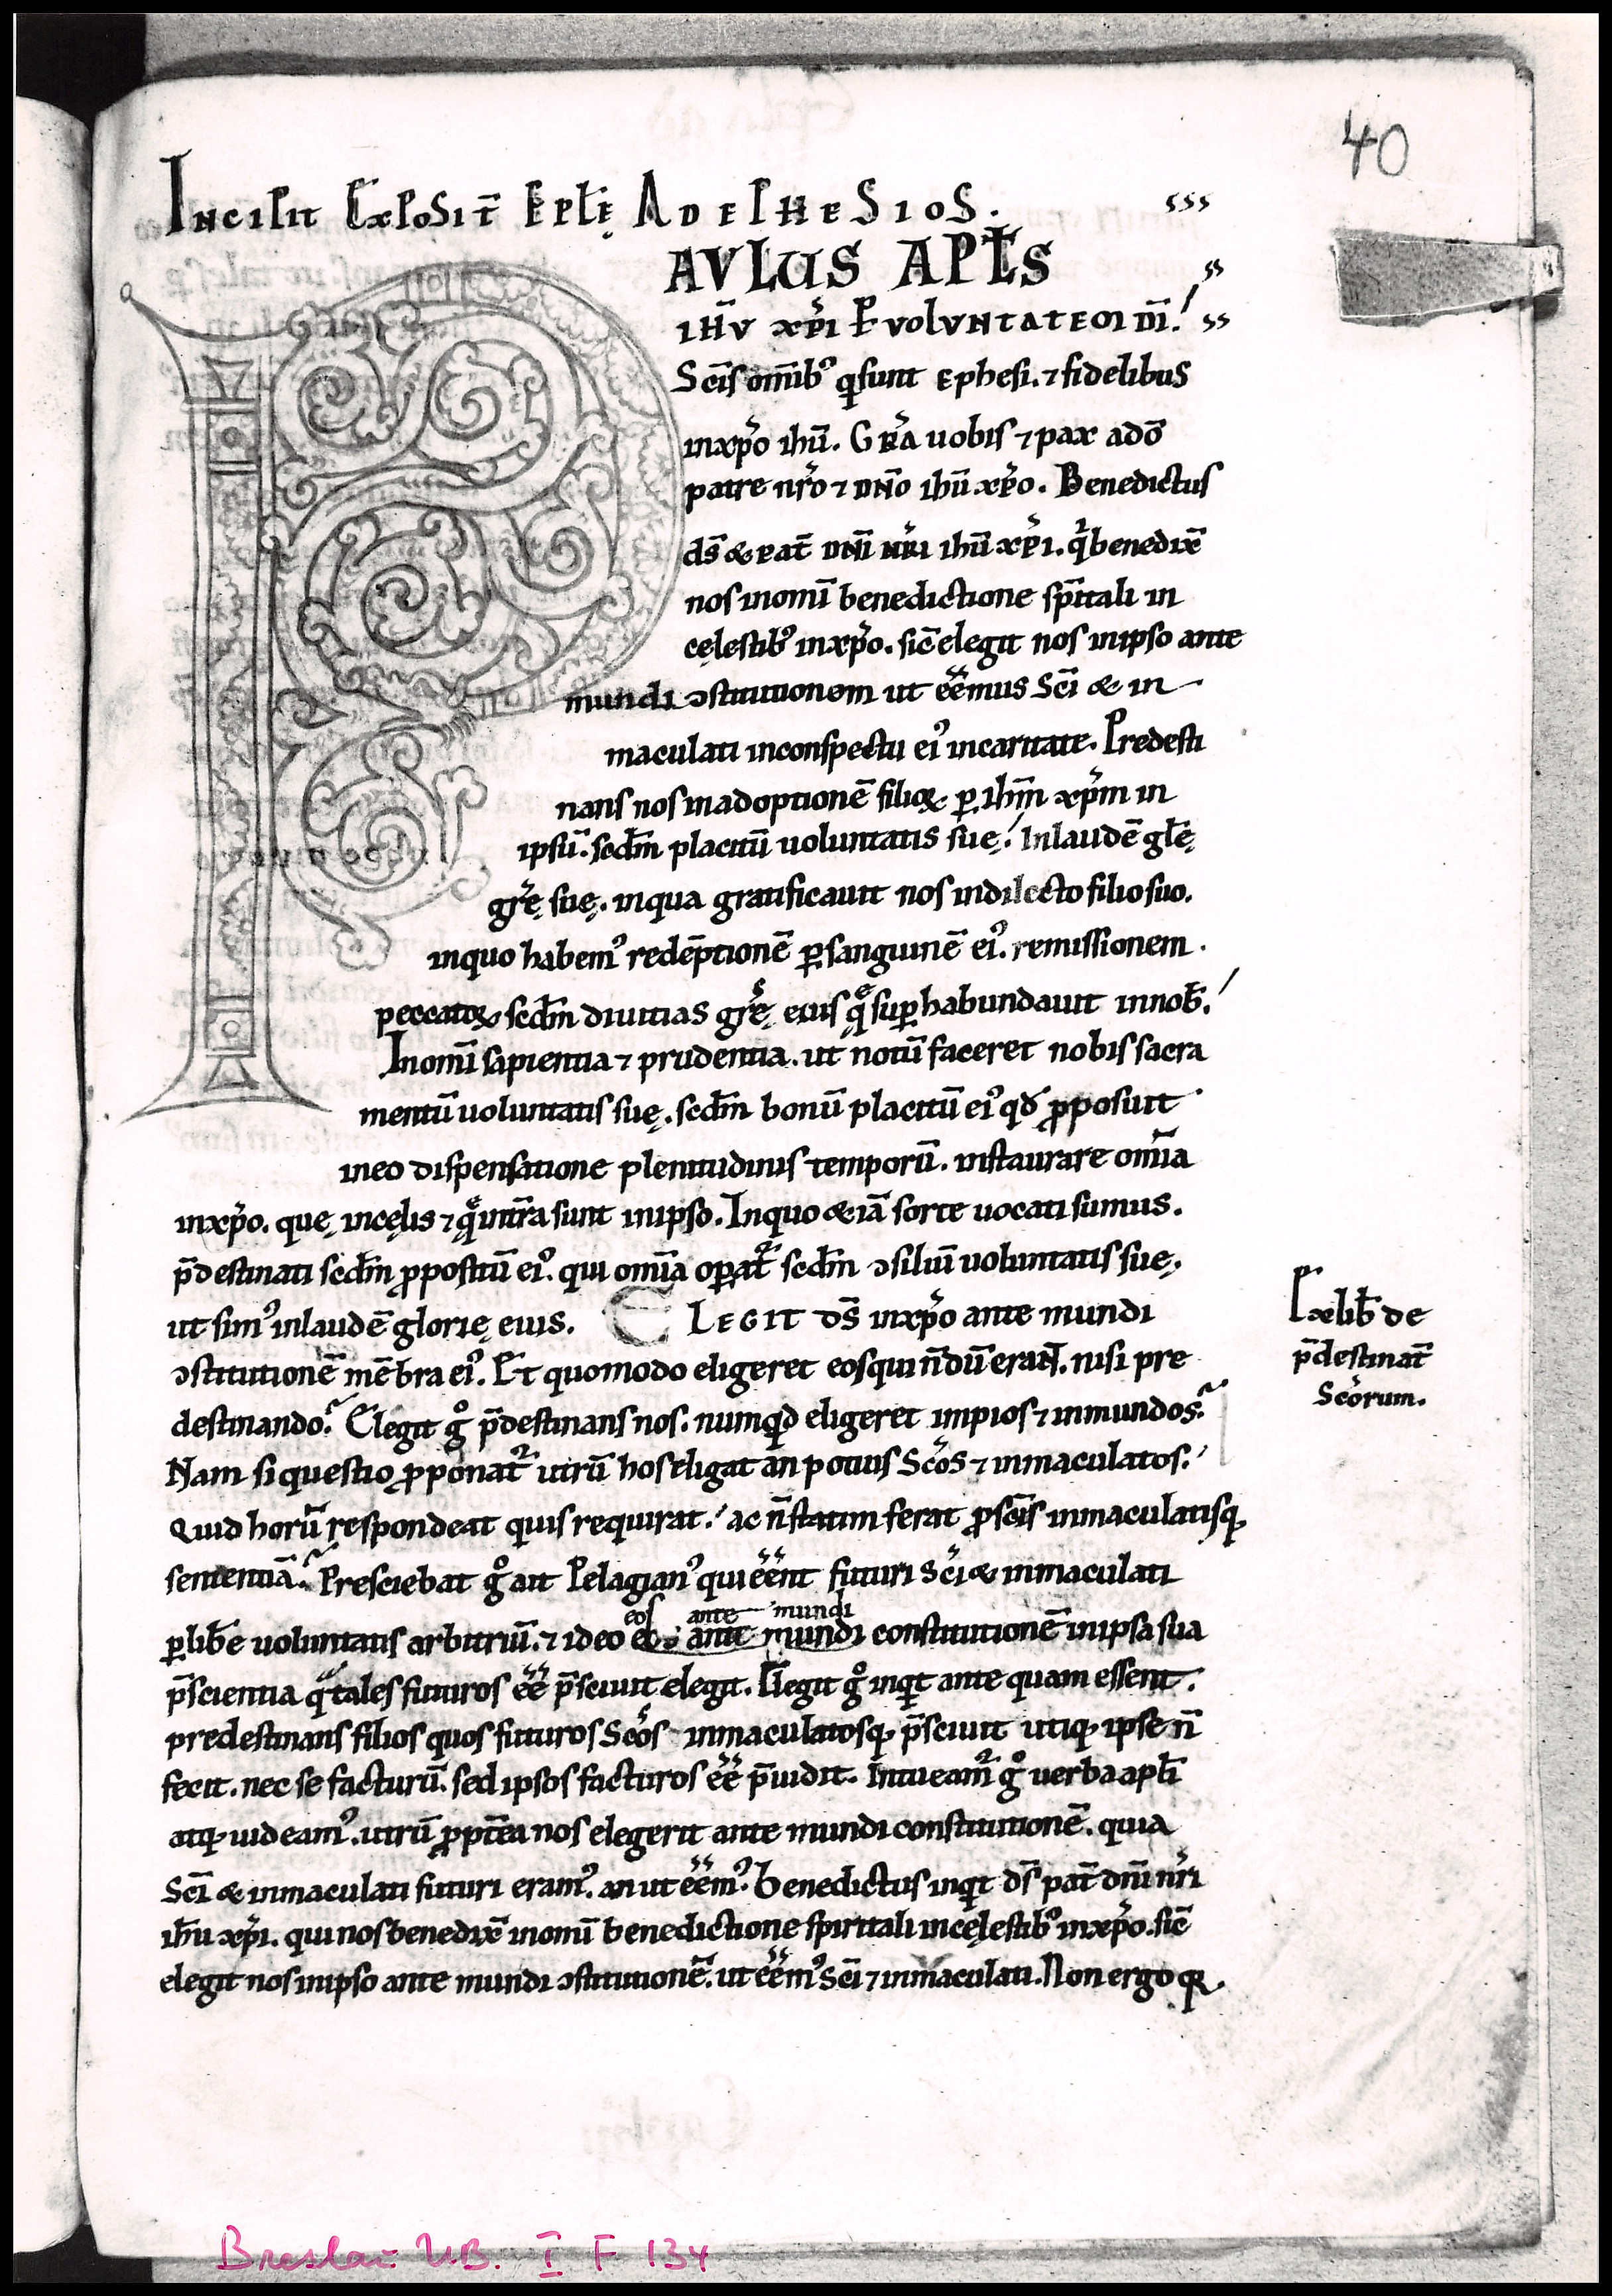 40
Incipit Exposit̄ Ep̄tlę Ad ephesios.
PAVLUS AP̄LS
ihū xp̄i ꝑ volvntatē dī.
Sc̄is om̄ibꝰ qͥ sunt ephesi. ⁊ fidelibus
inxp̄o ihū. Gr̄a uobis ⁊ pax adō
patre nr̄o ⁊ dn̄o ihū xp̄o. Benedictus
ds̄ & pat̄ dn̄i nr̄i ihū xp̄i. qͥ benedix̄
nos inomī benedictione sp̄itali in
cęlestibꝰ inxp̄o. sic̄ elegit nos inipso ante
mundi ↄstitutionem ut eēmus Sc̄i & in
maculati inconspectu eiꝰ incaritate. Predesti
nans nos inadoptionē filioꝝ ꝑ ihm̄ xp̄m in
ipsū. scdm̄ placitū uoluntatis suę. Inlaudē gl̄ę
gr̄ę suę. inqua gratificauit nos indilecto filio suo.
inquo habemꝰ redēptionē ꝑ sanguinē eiꝰ. remissionem
peccatoꝝ scdm̄ diuitias gr̄ę eius quę suꝑhabundauit innob̄.
Inomī sapientia ⁊ prudentia. ut notū faceret nobis sacra
mentū uoluntatis suę. scdm̄ bonū placitū eiꝰ qd̄ ꝓposuit
ineo dispensatione plenitudinis temporū. instaurare om̄ia
inxp̄o. quę incęlis ⁊ quę intr̄a sunt inipso. Inquo & iā sorte uocati sumus.
p̄destinati scdm̄ ꝓpositū eiꝰ. qui om̄ia oꝑat᷑ scdm̄ ↄsiliū uoluntatis suę.
ut simꝰ inlaudē glorię eius. ELEGIT ds̄ inxp̄o ante mundi
ↄstitutionē mēbra eiꝰ. Et quomodo eligeret eos qui n̄dū erant. nisi pre
destinando? Elegit gͦ p̄destinans nos. numqͥd eligeret impios ⁊ inmundos?
Nam si questio ꝓponat᷑ utrū hos eligat an potius Sc̄os ⁊ inmaculatos.
Quid horū respondeat quis requirat. ac n̄ statim ferat ꝓ sc̄is inmaculatisqꝫ
sententiā? Presciebat gͦ ait Pelagianꝰ qui eēnt futuri Sc̄i & inmaculati
eos ante mundi
ꝑ lib̄e uoluntatis arbitriū. ⁊ ideo eos ante mundi constitutionē inipsa sua
p̄scientia qͣ tales futuros eē p̄sciuit elegit. Elegit gͦ inqͥt ante quam essent.
predestinans filios quos futuros Sc̄os inmaculatosqꝫ p̄sciuit utiqꝫ ipse n̄
fecit. nec se facturū. sed ipsos facturos eē p̄uidit. Intueam᷑ gͦ uerba apl̄i
atqꝫ uideamꝰ. utrū ꝓpt̄ea nos elegerit ante mundi constitutionē. quia
Sc̄i & inmaculati futuri eramꝰ. an ut eēmꝰ. Benedictus inqͥt ds̄ pat̄ dn̄i nr̄i
ihū xp̄i. qui nos benedix̄ inomī benedictione spiritali incęlestibꝰ inxp̄o. sic̄
elegit nos inipso ante mundi ↄstitutionē. ut eēmꝰ Sc̄i ⁊ inmaculati. Non ergo qꝛ
Ex lib̄ de
p̄destinat̄
Sc̄orum.
Breslau U.B. I F 134